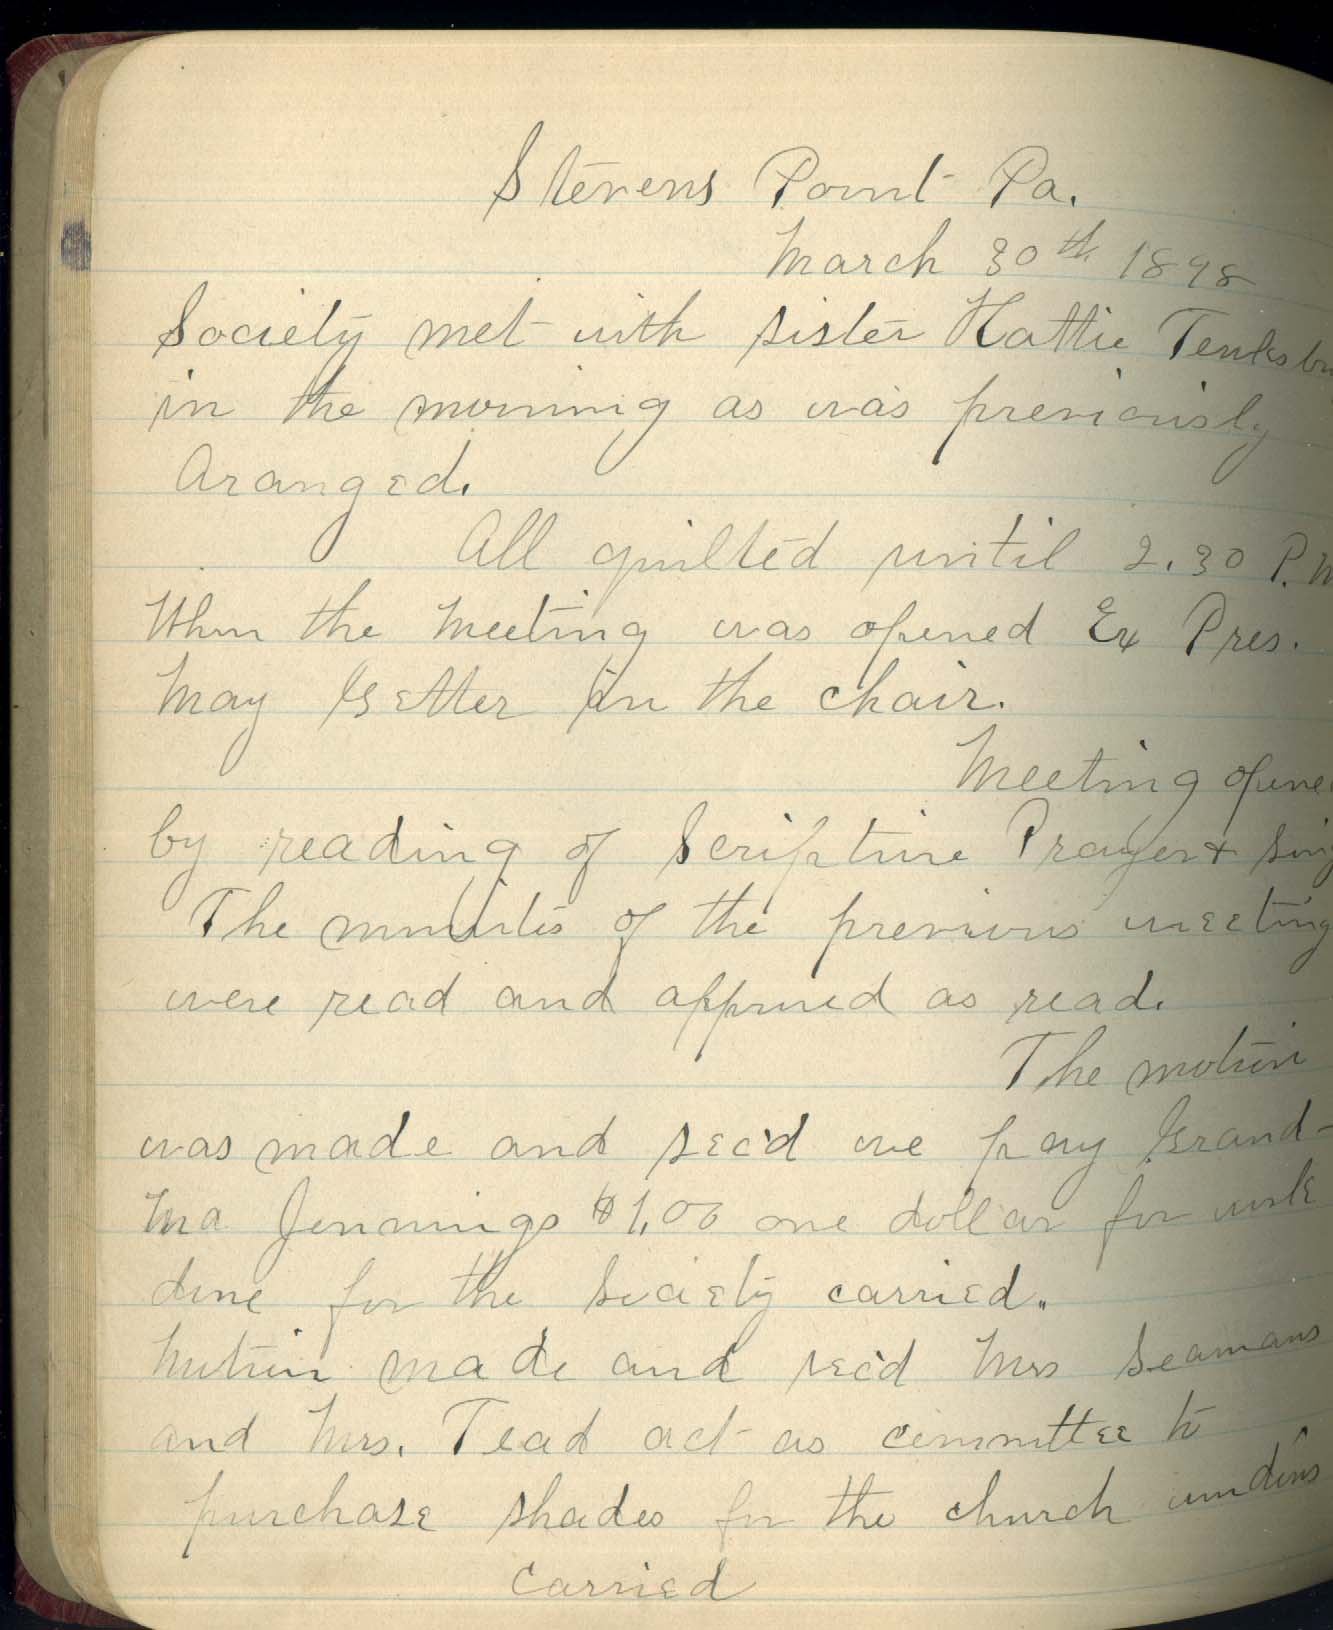 Stevens Point Pa.
March 30th 1898
Society met with sister Hattie
in the morning as was previously
Aranged.
All quilted until 2.30 P.M
When the Meeting was opened Ex Pres.
May Getter in the chair.
Meeting opened
by reading of Scripture Prayer &
The minutes of the previous meeting
were read and approved as read.
The motion
was made and sec'd we pay Grand-
Ma Jennings $1.00 one dollar for work
done for the Society carried.
Motion made and sec'd Mrs Seamans
and Mrs. Tead act as committee to
purchase shades for the church windows
carried